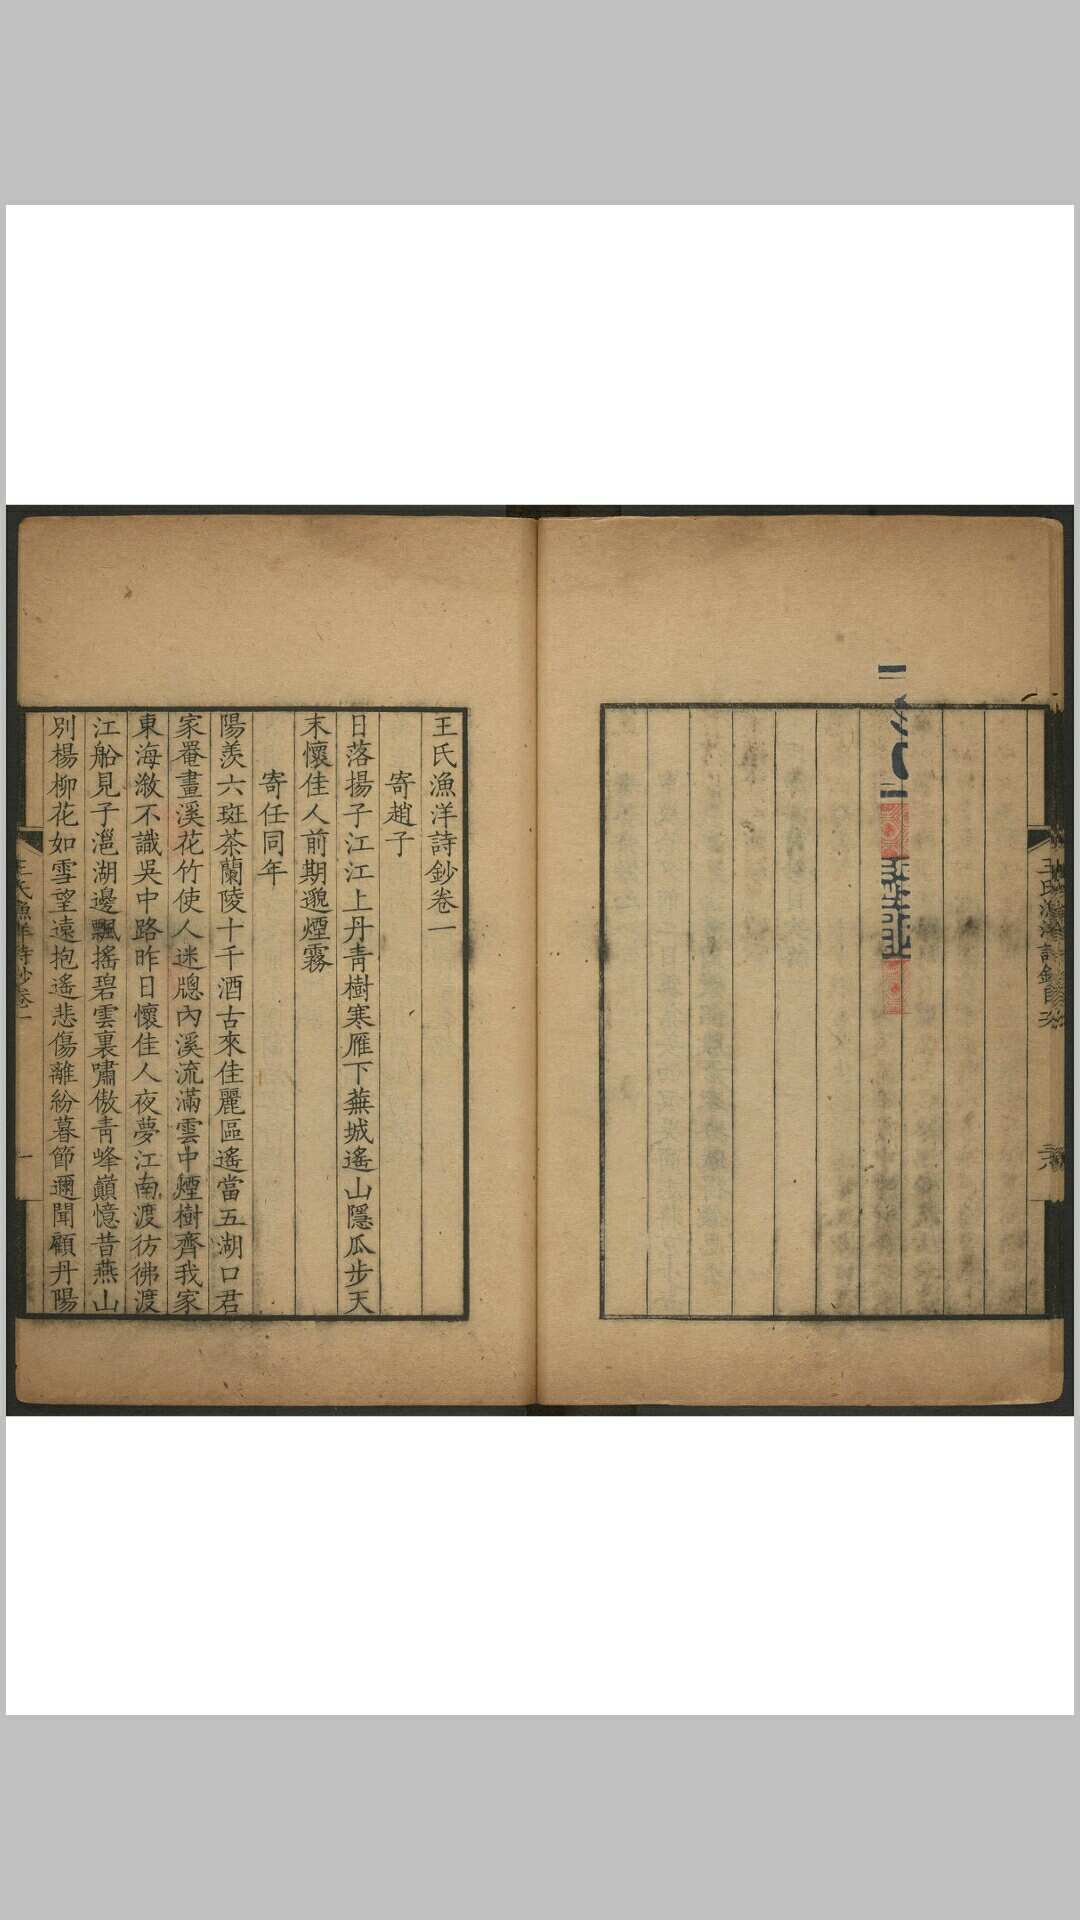 王氏漁洋詩鈔卷一
寄趙子
日落揚子江江上丹青樹寒雁下蕪城遙山隱瓜步天
末懷佳人前期邈煙霧
寄任同年
陽羨六斑茶蘭陵十千酒古來佳麗區遙當五湖口君
家罨畫溪花竹使人迷牎內溪流滿雲中煙樹齊我家
東海潡不識吳中路昨日懷佳人夜夢江南渡彷彿渡
江船見子滆湖邊飄搖碧雲裏嘯傲青峰巔憶昔燕山
別楊柳花如雪望遠抱遙悲傷離紛暮節邇聞顧丹陽
王氏漁洋詩鈔卷一
一